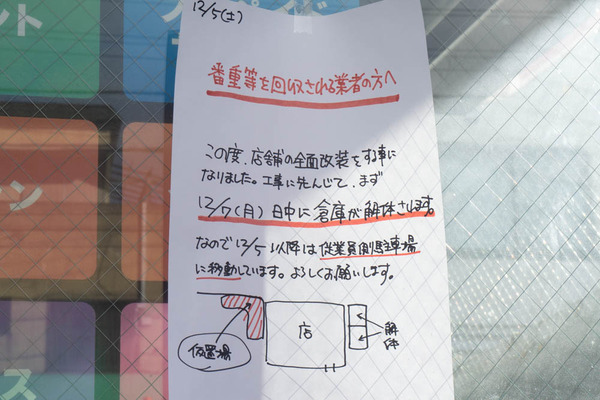 12/5(土)
番重等を回収される業者の方へ
この度、店舗の全面改装をする事に
なりました。工事に先んじて、まず
12/7(月)日中に倉庫が解体されます。
なので12/5以降は従業員側駐車場
に移動しています。よろしくお願いします。
仮置場
店
解体
ント
ン
ス